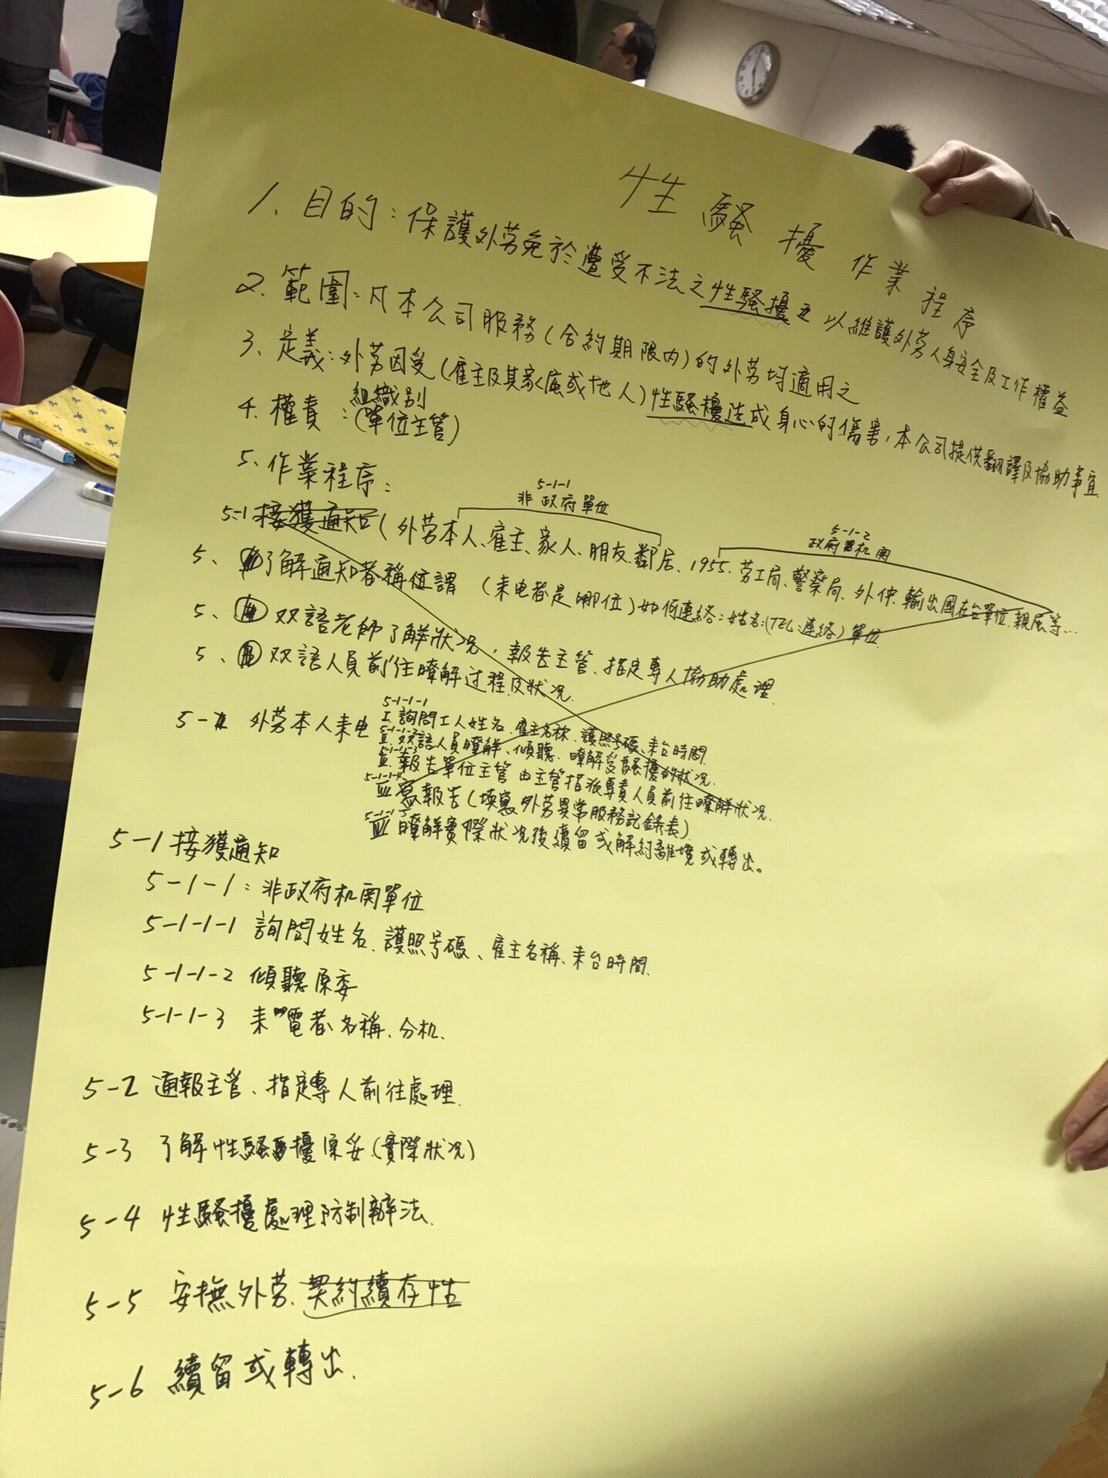 性騷擾作業程序
1、目的：保護外勞免於遭受不法之性騷擾 以維護外勞人身安全及工作權益
2、範圍：凡本公司服務(合約期限內)的外勞均適用之
3、定義：外勞因受(雇主及其家属或他人)性騷擾造成身心的傷害,本公司提供翻譯及協助事宜
4、權責：組織別
(單位主管)
5、作業程序：
5-1-1
非政府單位
5-1-2
政府机関
5-1 接獲通知(外勞本人、雇主、家人、朋友、鄰居、1955、勞工局、警察局、外仲、輸出國在台單位、親属等...
5、了解通知者稱位謂 (来电者是哪位)如何連絡：姓名:(TEL:連絡)單位
5、双語老師了解狀况，報告主管、指定專人協助處理
5、双語人員前往瞭解过程及狀况
5- 外勞本人来电
5-1-1-1
I 詢問工人姓名、雇主名称、護照号碼、来台時間
II 双語人員瞭解、傾聽、瞭解受騷擾的狀况
III 報告單位主管 由主管指派專責人員前往瞭解狀况
報告(填寫外勞異常服務記錄表)
瞭解實際狀况後續留或解約離境或轉出。
5-1 接獲通知
5-1-1：非政府机関單位
5-1-1-1 詢問姓名、護照号碼、雇主名稱、来台時間
5-1-1-2 傾聽原委
5-1-1-3 来電者名稱、分机.
5-2 通報主管、指定專人前往處理.
5-3 了解性騷擾原委(實際狀况)
5-4 性騷擾處理防制辦法.
5-5 安撫外勞、契約續存性
5-6 續留或轉出.